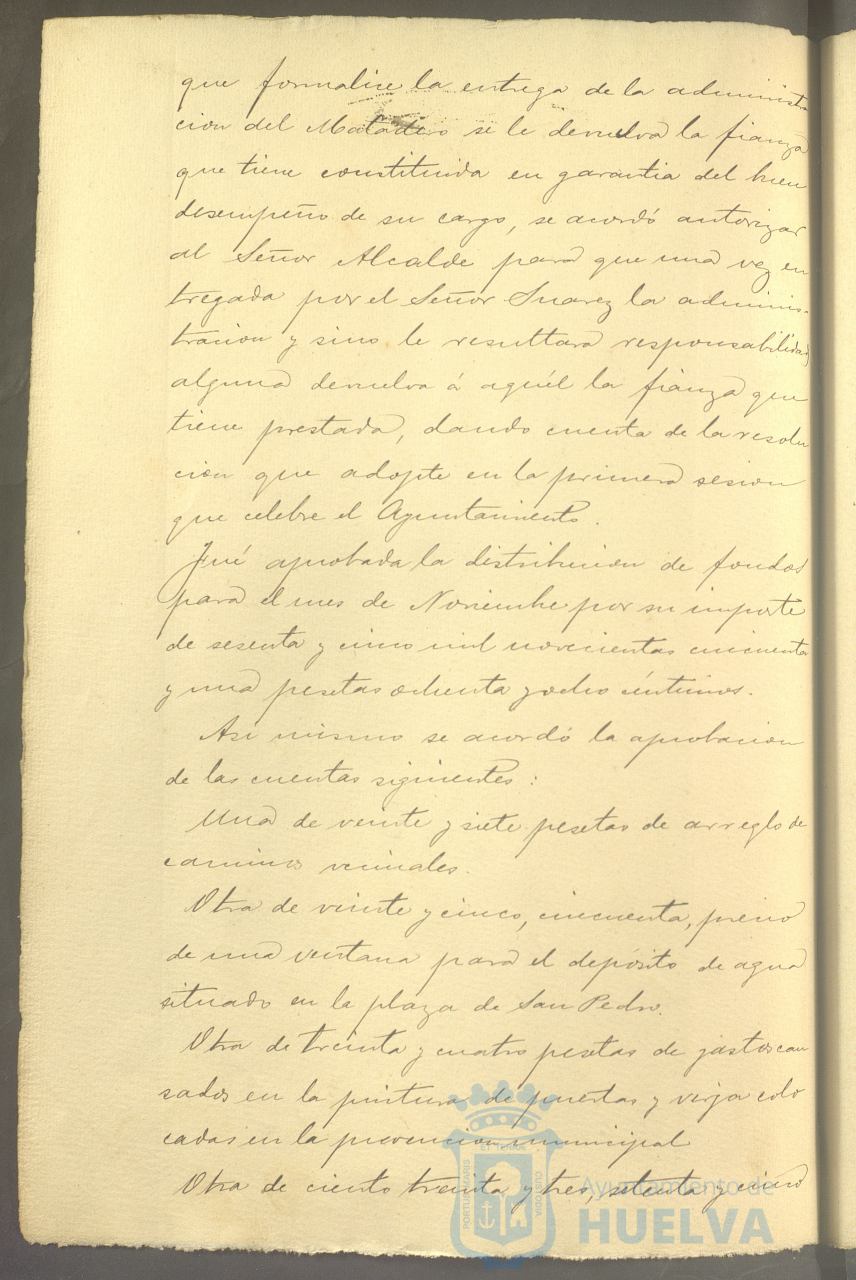 que formalice la entrega de la administra
cion del Matadero se le devuelva la fianza
que tiene constituida en garantia del buen
desempeño de su cargo, se acordó autorizar
al Señor Alcalde para que una vez en
tregada por el Señor Suarez la adminis-
tracion y sino le resultara responsabilidad
alguna devuelva á aquél la fianza que
tiene prestada, dando cuenta de la resolu
cion que adopte en la primera sesion
que celebre el Ayuntamiento.
Fué aprobada la distribucion de fondos
para el mes de Noviembre por su importe
de sesenta y cinco mil novecientas cincuenta
y una pesetas ochenta y ocho céntimos.
Asi mismo se acordó la aprobacion
de las cuentas siguientes:
Una de veinte y siete pesetas de arreglo de
caminos vecinales.
Otra de veinte y cinco, cincuenta, precio
de una ventana para el depósito de agua
situado en la plaza de San Pedro.
Otra de treinta y cuatro pesetas de gastos cau
sados en la pintura de puertas y verja colo
cadas en la prevencion municipal
Otra de ciento treinta y tres, setenta y cinco
PORTUS MARIS
ET TERRAE
CUSTODIA
Ayuntamiento de
HUELVA